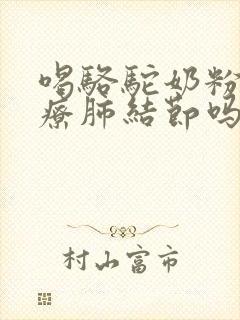 喝駱駝奶粉
療肺結節吗
村山富市